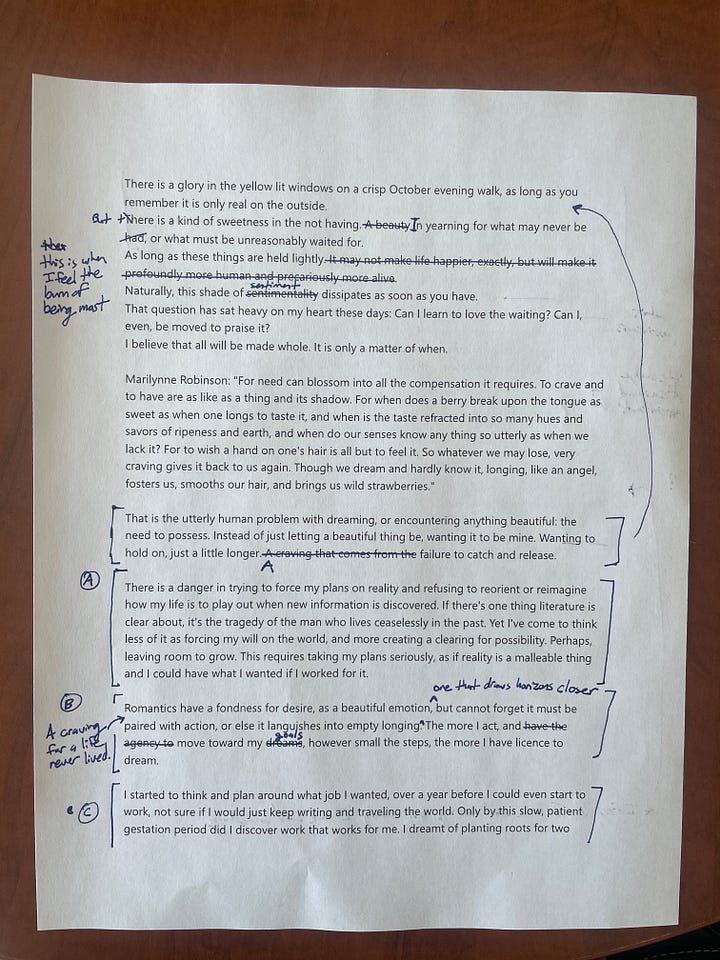 There is a glory in the yellow lit windows on a crisp October evening walk, as long as you
remember it is only real on the outside.
But there is a kind of sweetness in the not having. A beauty In yearning for what may never be
had, or what must be unreasonably waited for.
this is when
I feel the
burn of
being most
As long as these things are held lightly. It may not make life happier, exactly, but will make it
profoundly more human and precariously more alive.
sentiment
Naturally, this shade of sentimentality dissipates as soon as you have.
That question has sat heavy on my heart these days: Can I learn to love the waiting? Can I,
even, be moved to praise it?
I believe that all will be made whole. It is only a matter of when.
Marilynne Robinson: "For need can blossom into all the compensation it requires. To crave and
to have are as like as a thing and its shadow. For when does a berry break upon the tongue as
sweet as when one longs to taste it, and when is the taste refracted into so many hues and
savors of ripeness and earth, and when do our senses know any thing so utterly as when we
lack it? For to wish a hand on one's hair is all but to feel it. So whatever we may lose, very
craving gives it back to us again. Though we dream and hardly know it, longing, like an angel,
fosters us, smooths our hair, and brings us wild strawberries."
That is the utterly human problem with dreaming, or encountering anything beautiful: the
need to possess. Instead of just letting a beautiful thing be, wanting it to be mine. Wanting to
hold on, just a little longer. A craving that comes from the failure to catch and release.
A
A
There is a danger in trying to force my plans on reality and refusing to reorient or reimagine
how my life is to play out when new information is discovered. If there's one thing literature is
clear about, it's the tragedy of the man who lives ceaselessly in the past. Yet I've come to think
less of it as forcing my will on the world, and more creating a clearing for possibility. Perhaps,
leaving room to grow. This requires taking my plans seriously, as if reality is a malleable thing
and I could have what I wanted if I worked for it.
one that draws horizons closer
B
Romantics have a fondness for desire, as a beautiful emotion, but cannot forget it must be
paired with action, or else it languishes into empty longing. The more I act, and have the
A craving
for a life
never lived.
goals
agency to move toward my dreams, however small the steps, the more I have licence to
dream.
C
I started to think and plan around what job I wanted, over a year before I could even start to
work, not sure if I would just keep writing and traveling the world. Only by this slow, patient
gestation period did I discover work that works for me. I dreamt of planting roots for two